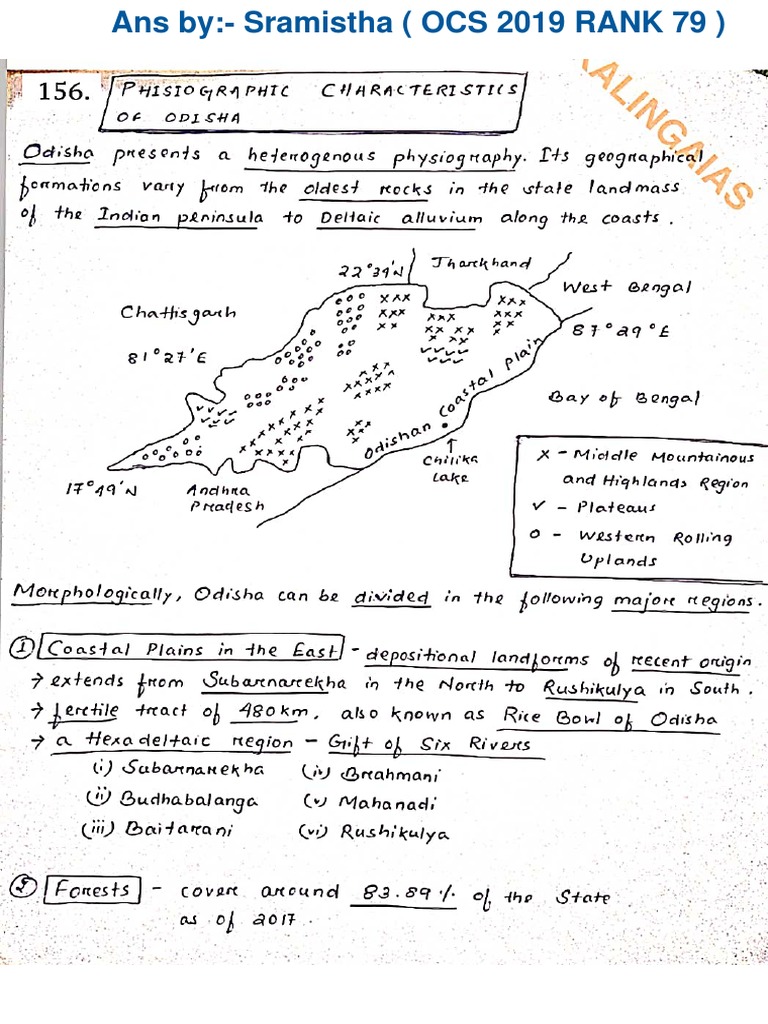 Ans by:- Sramistha ( OCS 2019 RANK 79 )
KALINGAIAS
156. PHISIOGRAPHIC CHARACTERISTICS
OF ODISHA
Odisha presents a heterogenous physiography. Its geographical
formations vary from the oldest rocks in the state landmass
of the Indian peninsula to Deltaic alluvium along the coasts.
22°34'N
Jharkhand
West Bengal
Chattisgarh
87°29°E
81°27'E
Bay of Bengal
Odishan Coastal Plain
Chilika
Lake
17°49'N
Andhra
Pradesh
x - Middle Mountainous
and Highlands Region
✓ - Plateaus
o - Western Rolling
Uplands
Morphologically, Odisha can be divided in the following major regions.
① Coastal Plains in the East - depositional landforms of recent origin
→ extends from Subarnarekha in the North to Rushikulya in South.
→ fertile tract of 480km, also known as Rice Bowl of Odisha
→ a Hexadeltaic region - Gift of Six Rivers
(i) Subarnarekha (iv) Brahmani
(ii) Budhabalanga (v) Mahanadi
(iii) Baitarani (vi) Rushikulya
② Forests - cover around 83.89% of the State
as of 2017.